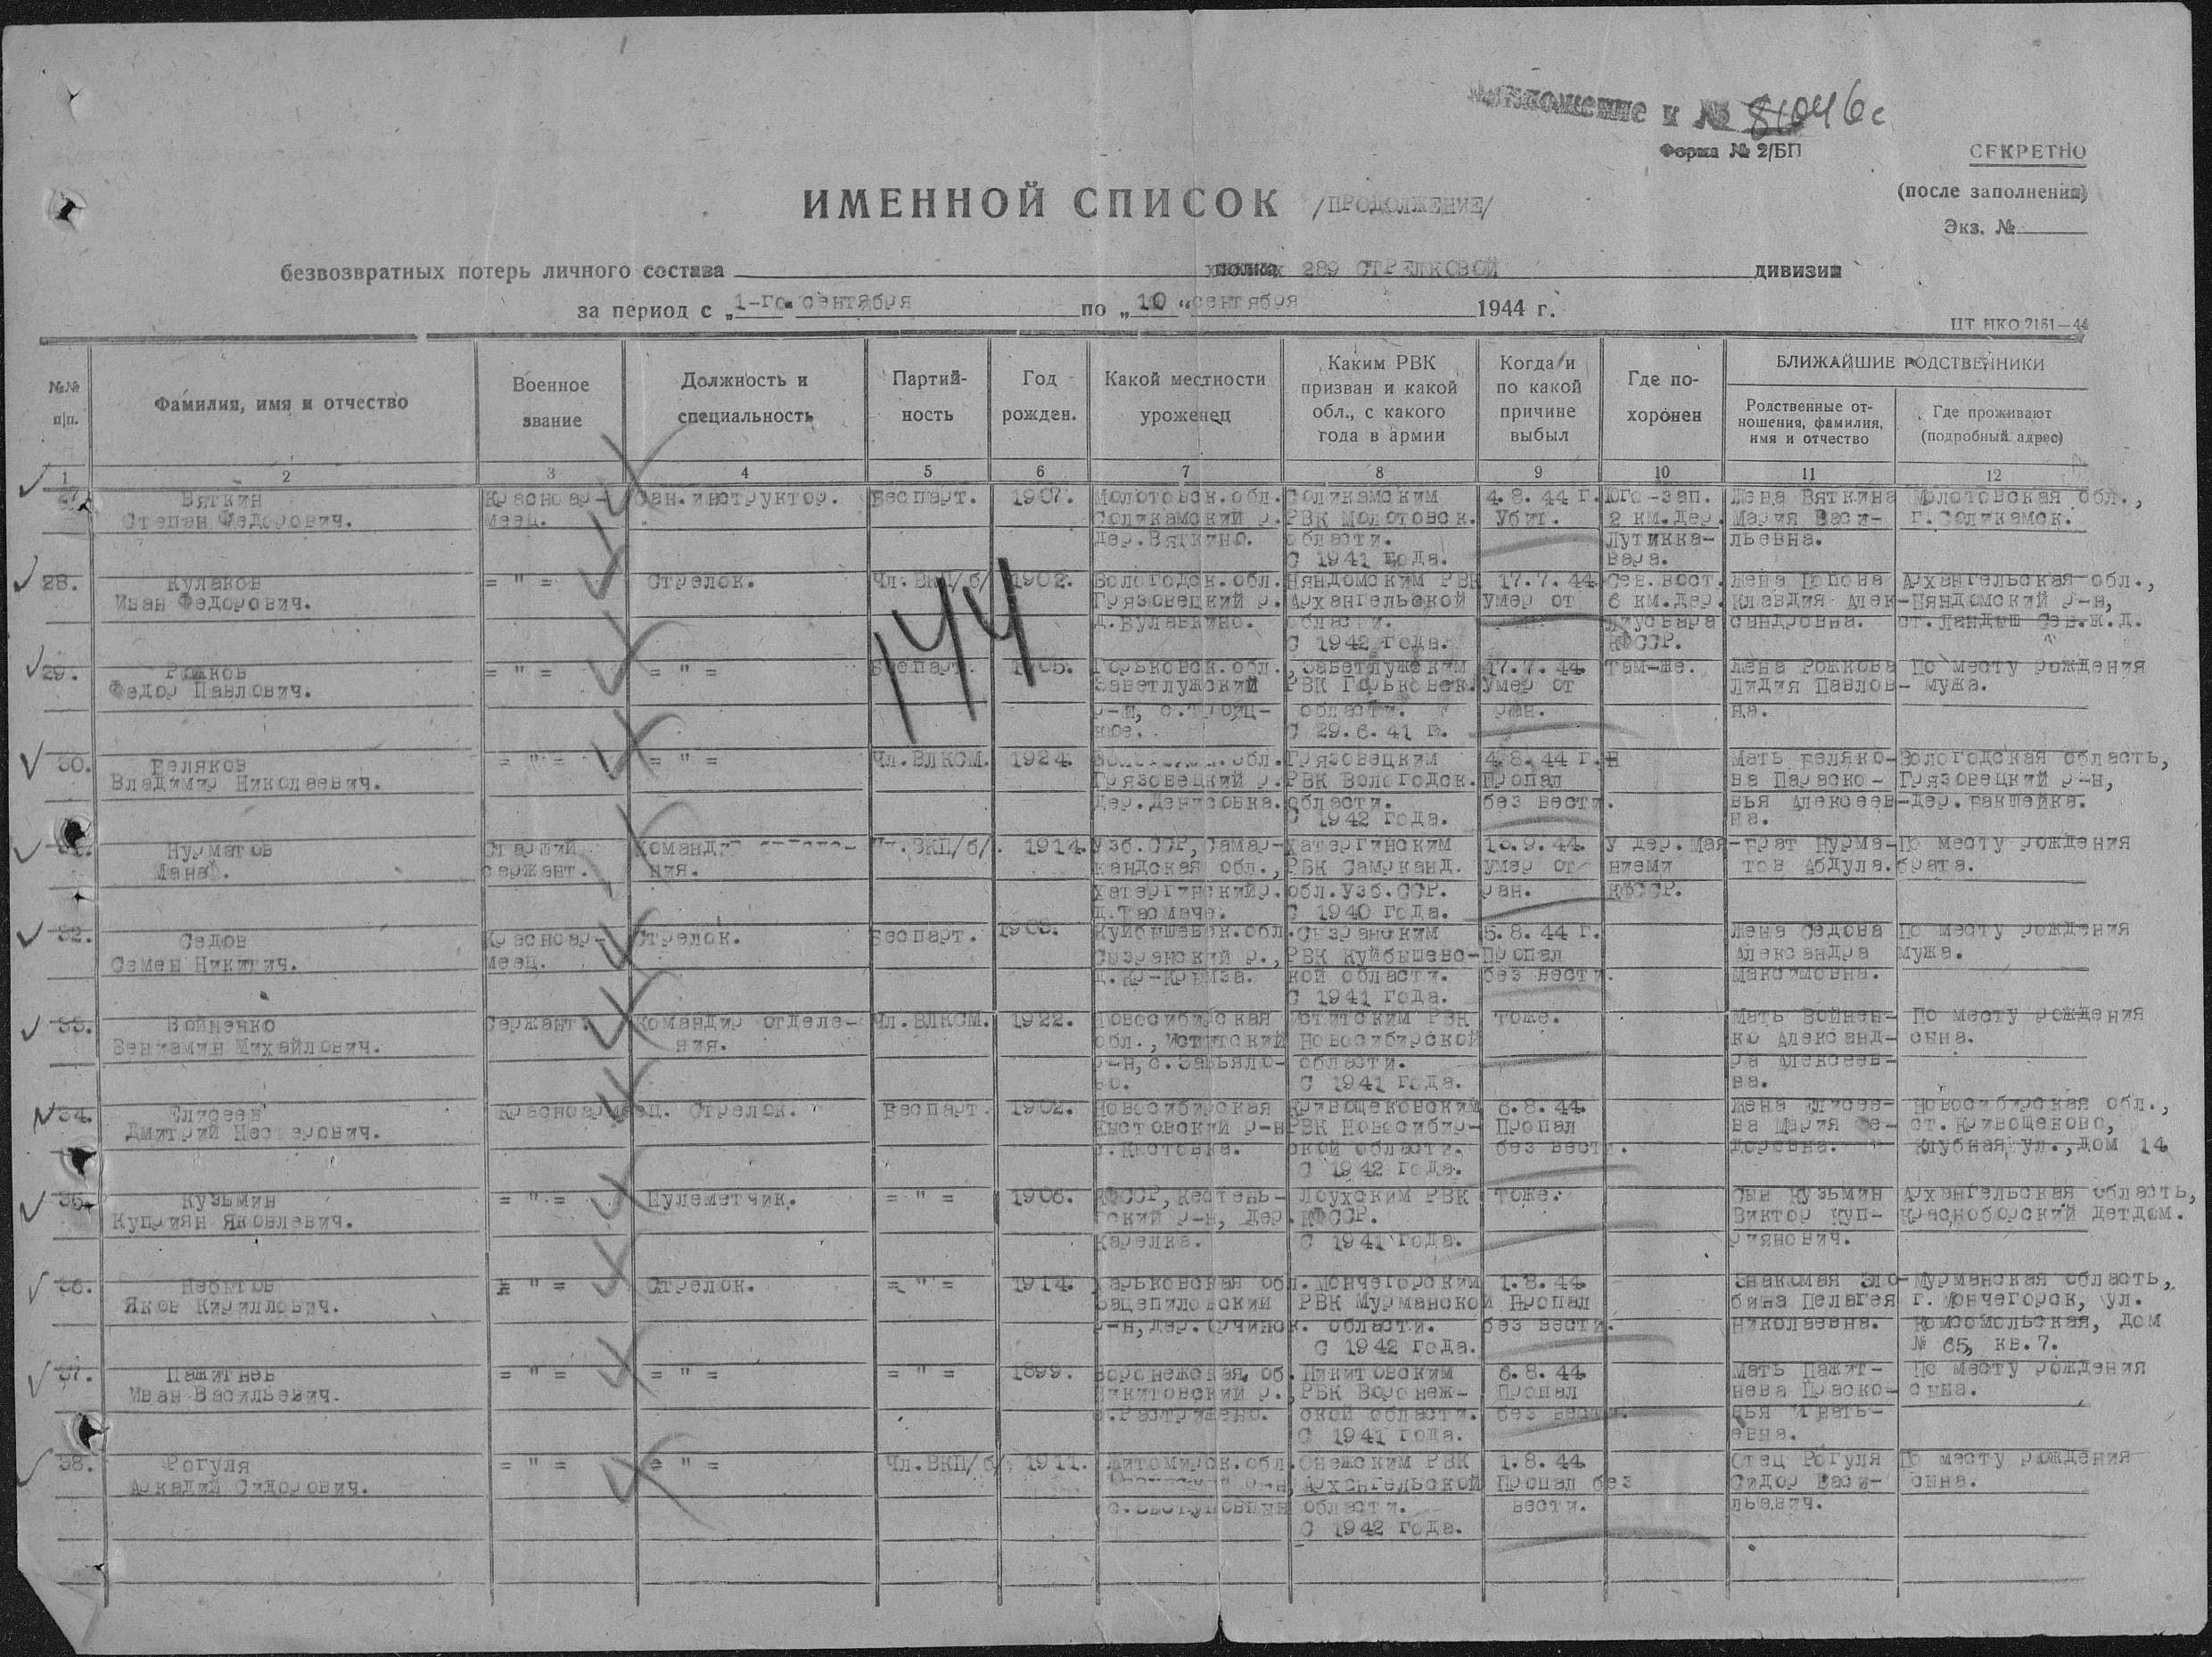 Приложение к № 81046с
Форма № 2/БП
СЕКРЕТНО
(после заполнения)
Экз. №
ИМЕННОЙ СПИСОК /ПРОДОЛЖЕНИЕ/
безвозвратных потерь личного состава полка 289 СТРЕЛКОВОЙ дивизии
за период с „1-го" сентября по „10" сентября 1944 г.
ЦТ НКО 2151—44
№№ п/п.
Фамилия, имя и отчество
Военное звание
Должность и специальность
Партий-ность
Год рожден.
Какой местности уроженец
Каким РВК призван и какой обл., с какого года в армии
Когда и по какой причине выбыл
Где по-хоронен
БЛИЖАЙШИЕ РОДСТВЕННИКИ
Родственные от-ношения, фамилия, имя и отчество
Где проживают (подробный адрес)
1 2 3 4 5 6 7 8 9 10 11 12
27. Вяткин Красноар- Сан.инструктор. Беспарт. 1907. Молотовск.обл. Соликамским 4.8.44 г. Юго-зап. Жена Вяткина Молотовская обл.,
Степан Федорович. меец. Соликамский р. РВК Молотовск. Убит. 2 км.дер. Мария Васи- г.Соликамск.
дер.Вяткино. области. Лутикка- льевна.
С 1941 года. вара.
28. Кулаков = " = Стрелок. Чл.ВКП/б/ 1902. Вологодск.обл. Няндомским РВК 17.7.44. Сев.вост. Жена Попова Архангельская обл.,
Иван Федорович. Грязовецкий р. Архангельской Умер от 6 км.дер. Клавдия Алек- Няндомский р-н,
области. сандровна. ст.Ландыш Сев.ж.д.
С 1942 года. КФССР.
144
29. Рожков = " = = " = Беспарт. 1905. Горьковск.обл., Заветлужским 17.7.44. Там-же. Жена Рожкова По месту рождения
Федор Павлович. Заветлужский РВК Горьковск. Умер от Лидия Павлов- мужа.
р-н, с.Троиц- области. ран. на.
кое. С 29.6.41 г.
30. Беляков = " = = " = Чл.ВЛКСМ. 1924. обл. Грязовецким 4.8.44 г. Н Мать Беляко- Вологодская область,
Владимир Николаевич. Грязовецкий р. РВК Вологодск. Пропал ва Параско- Грязовецкий р-н,
дер.Денисовка. области. без вести. вья Алексеев- дер.Бакшейка.
С 1942 года. на.
31. Нурматов Старший Командир отделе- Чл.ВКП/б/. 1914. Узб.ССР, Самар- Хатергинским 10.9.44. У дер.Мая- Брат Нурма- По месту рождения
Манаф. сержант. ния. кандская обл., РВК Самрканд. умер от ниеми тов Абдула. брата.
Хатергинский р. обл.Узб.ССР. ран. КФССР.
С 1940 года.
32. Седов Красноар- Стрелок. Беспарт. Куйбышевск.обл. Сызранским 5.8.44 г. Жена Седова По месту рождения
Семен Никитич. меец. Сызранский р., РВК Куйбышевс- Пропал Александра мужа.
д.Кр-Крымза. кой области. без вести. Максимовна.
С 1941 года.
33. Войненко Сержант. Командир отделе- Чл.ВЛКСМ. 1922. Новосибирская РВК тоже. Мать Войнен- По месту рождения
Вениамин Михайлович. ния. обл., Новосибирской ко Александ- сына.
р-н, с.Завьяло- области. ра Алексеев-
во. С 1941 года. на.
34. Елисеев Красноармеец. Стрелок. Беспарт. 1902. Новосибирская Кривощековским 6.8.44. Жена Елисее- Новосибирская обл.,
Дмитрий Нестерович. р-н РВК Новосибир- Пропал ва Мария Фе- ст.Кривощеково,
ской области. без вести. доровна. Клубная ул., дом 14
С 1942 года.
35. Кузьмин = " = Пулеметчик. = " = 1906. КФССР, Кестень- Лоухским РВК тоже. Сын Кузьмин Архангельская область,
Куприян Яковлевич. гский р-н, дер. КФССР. Виктор Куп- Красноборский детдом.
Карелка. С 1941 года. риянович.
36. Небытов = " = Стрелок. = " = 1914. Харьковская обл. Мончегорским 1.8.44. Знакомая Мурманская область,
Яков Кириллович. Зацепиловский РВК Мурманской Пропал бина Пелагея г.Мончегорск, ул.
р-н, дер. области. без вести. Николаевна. Комсомольская, дом
С 1942 года. № 65, кв.7.
37. Пажитнев = " = = " = = " = 1899. Воронежская об. Никитовским 6.8.44. Мать Пажит- По месту рождения
Иван Васильевич. Никитовский р., РВК Воронеж- Пропал нева Праско- сына.
ской области. без вести. вья Игнать-
С 1941 года. евна.
38. Рогуля = " = = " = Чл.ВКП/б/. 1911. Житомирск.обл. Онежским РВК 1.8.44. Отец Рогуля По месту рождения
Аркадий Сидорович. р-н, Архангельской Пропал без Сидор Васи- сына.
области. вести. льевич.
С 1942 года.